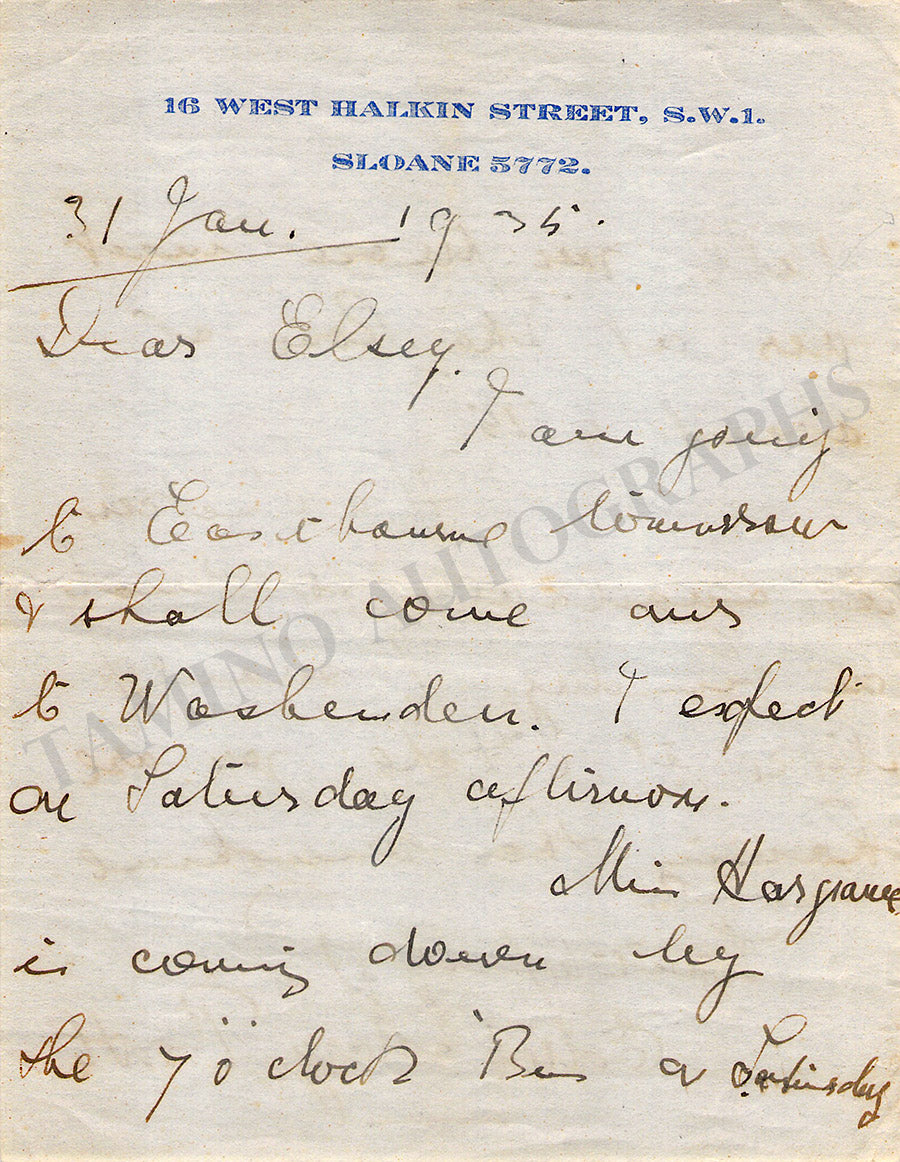 16 WEST HALKIN STREET, S.W.1.
SLOANE 5772.
31 Jan. 1935.
Dear Elsey.
I am going
to Eastbourne tomorrow
& shall come over
to Washenden. I expect
on Saturday afternoon.
Miss Hargrave
is coming down by
the 7 o'clock 'Bus on Saturday
TAMINO AUTOGRAPHS